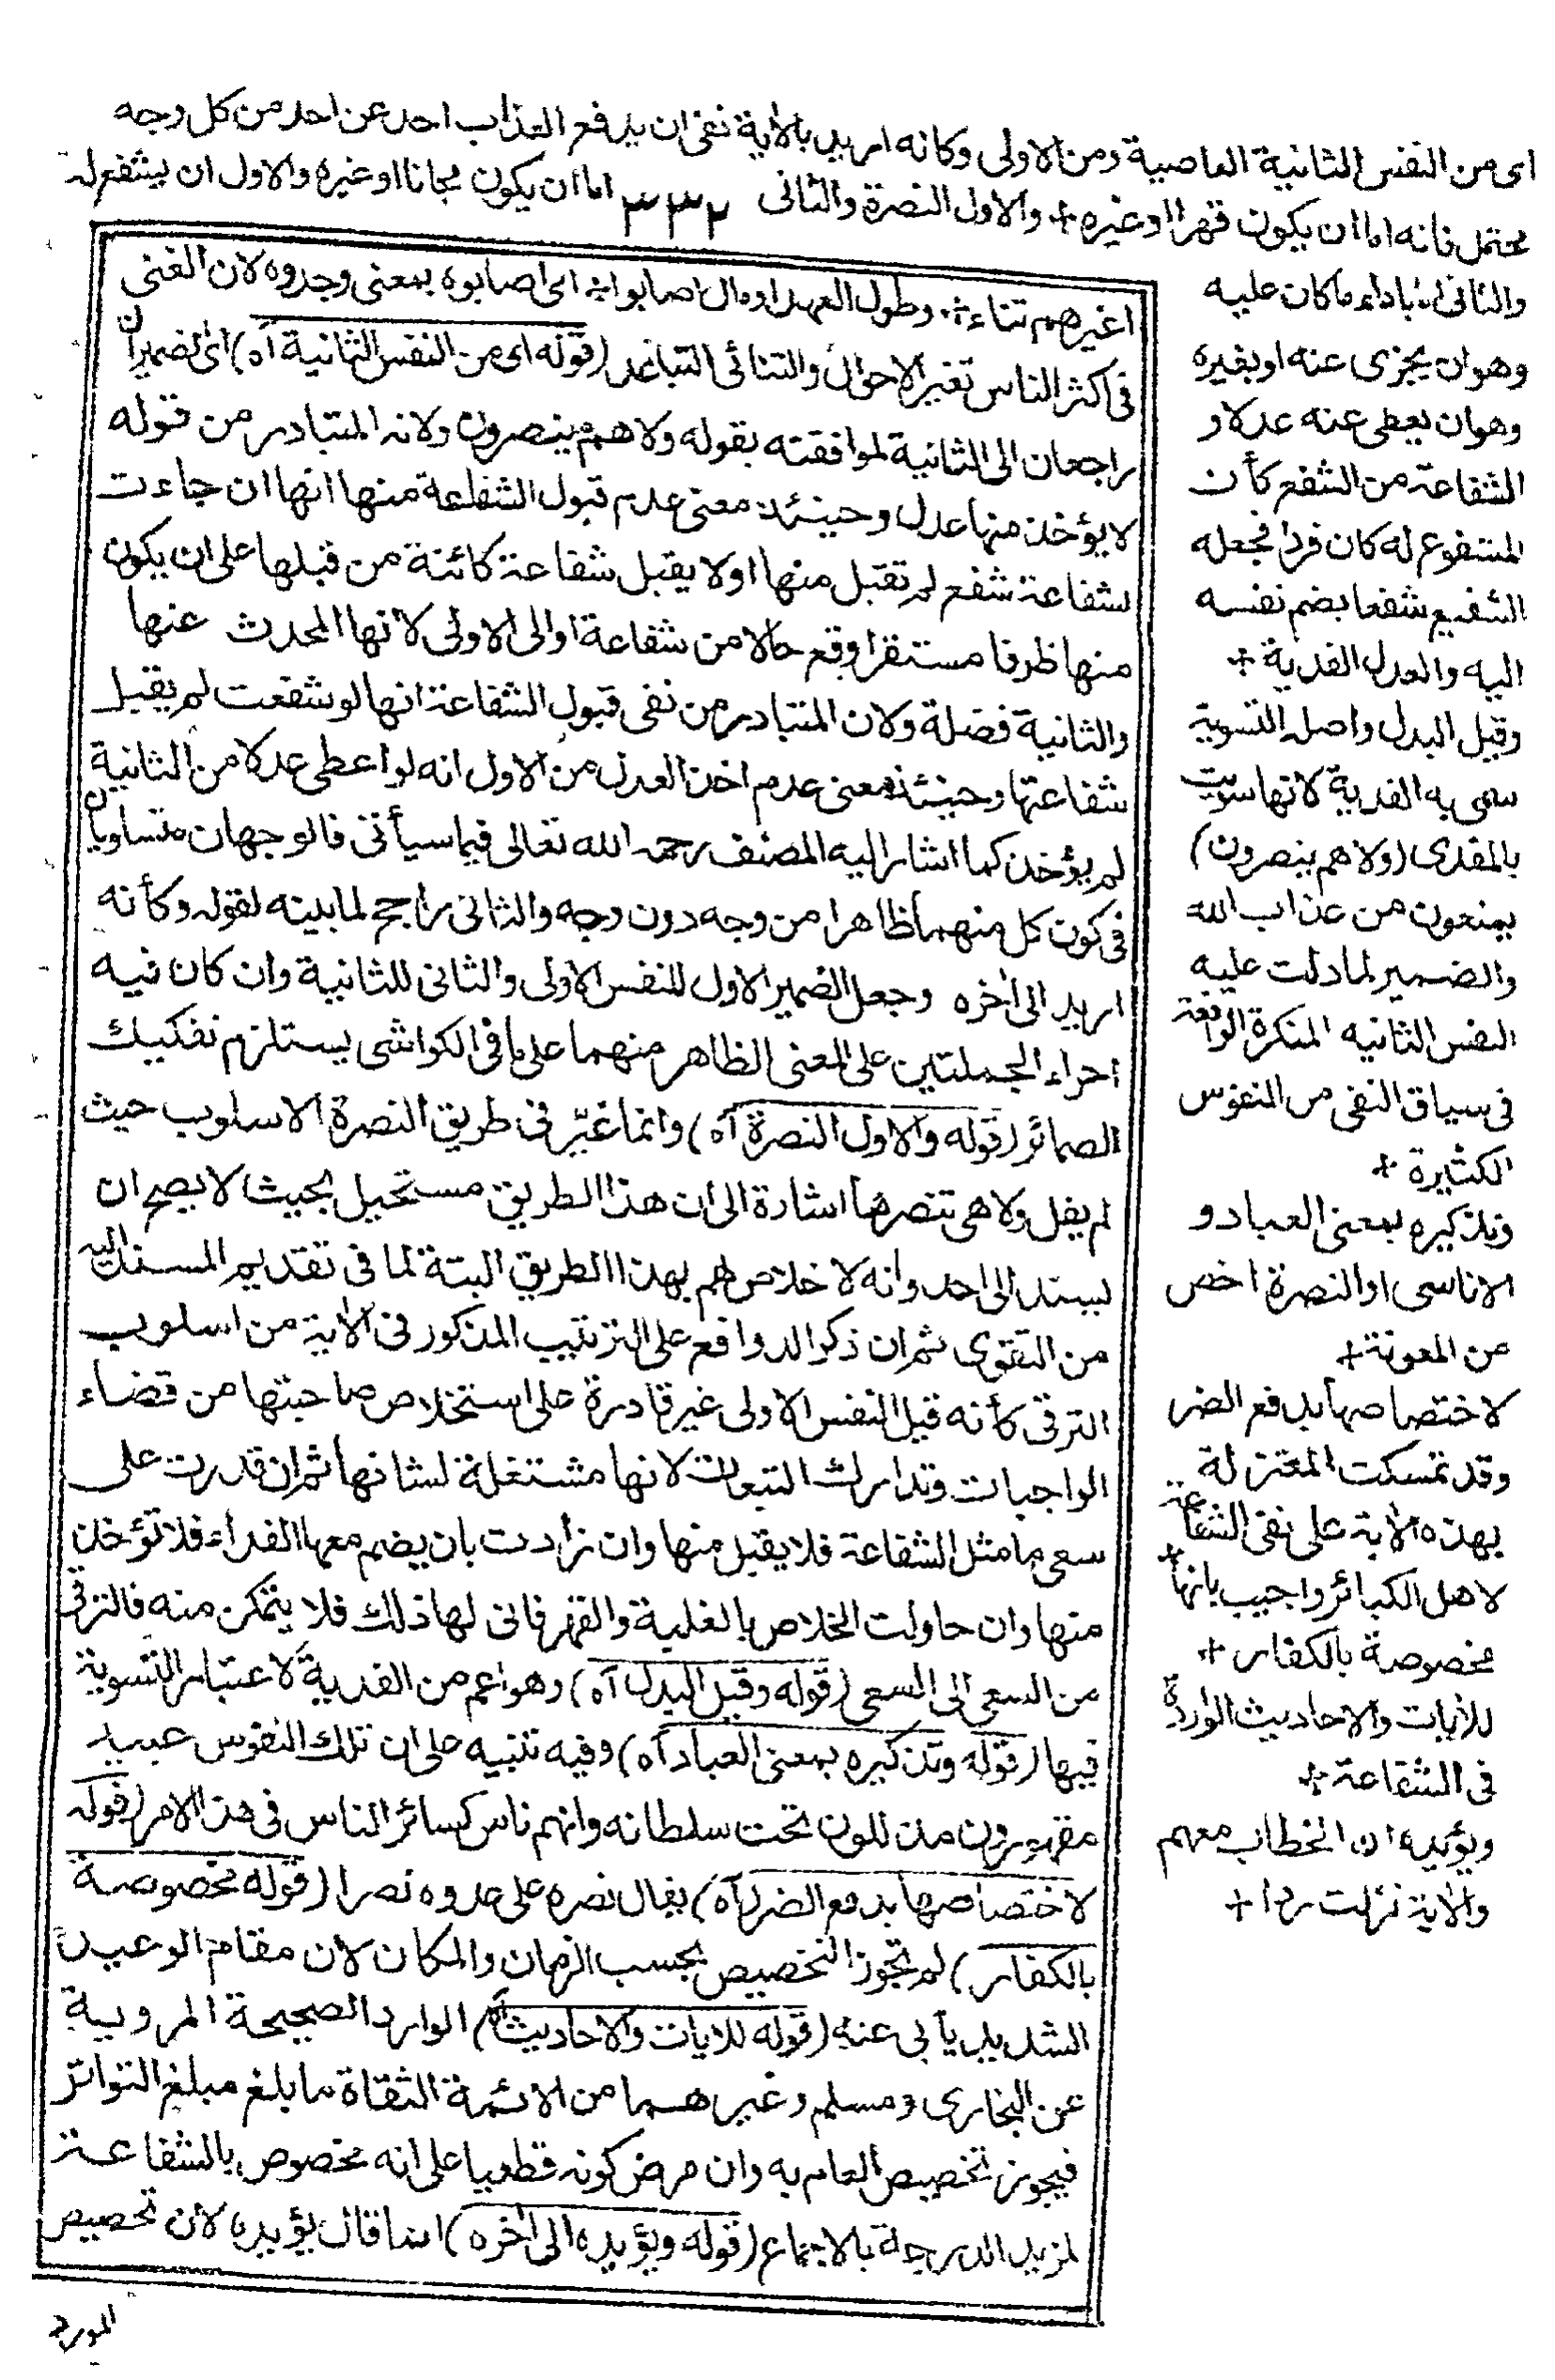 اى من النفس الثانية العاصية ومن الاولى وكانه اريد بالاية نفى ان يدفع العذاب احد عن احد من كل وجه
محتمل فانه اما ان يكون قهرا او غيره + والاول النصرة والثانى ٣٣٢ اما ان يكون مجانا او غيره والاول ان يشفع له
والثانى اما باداء ما كان عليه
وهو ان يجزى عنه او بغيره
وهو ان يعطى عنه عدلا و
الشفاعة من الشفع كأن
المشفوع له كان فردا فجعله
الشفيع شفعا بضم نفسه
اليه والعدل الفدية +
وقيل البدل واصله التسوية
سمى به الفدية لانها سويت
بالمفدى (ولا هم ينصرون)
يمنعون من عذاب الله
والضمير لما دلت عليه
النفس الثانيه المنكرة الواقعة
فى سياق النفى من النفوس
الكثيرة +
وتذكيره بمعنى العباد و
الاناسى او النصرة اخص
من المعونة +
لاختصاصها بدفع الضر
وقد تمسكت المعتزلة
بهذه الاية على نفى الشفاعة
لاهل الكبائر واجيب بانها +
مخصوصة بالكفار +
للأيات والاحاديث الواردة
فى الشفاعة +
ويؤيده ان الخطاب معهم
والاية نزلت ردا +
اغيرهم تناءٍ وطول العهد ام مال اصابوا اى اصابوه بمعنى وجدوه لان الغنى
فى اكثر الناس تغير الاحوال والتنائى التباعد (قوله اى من النفس الثانية آه) اى الضميران
راجعان الى الثانية لموافقته بقوله ولا هم ينصرون ولانه المتبادر من قوله
لا يؤخذ منها عدل وحينئذ معنى عدم قبول الشفاعة منها انها ان جاءت
بشفاعة شفع لم تقبل منها او لا يقبل شفاعة كائنة من قبلها على ان يكون
منها ظرفا مستقرا وقع حالا من شفاعة او الى الاولى لانها المحدث عنها
والثانية فضلة ولان المتبادر من نفى قبول الشفاعة انها لو شفعت لم يقبل
شفاعتها وحينئذ معنى عدم اخذ العدل من الاول انه لو اعطى عدلا من الثانية
لم يؤخذ كما اشار اليه المصنف رحمه الله تعالى فيما سيأتى فالوجهان متساويان
فى كون كل منهما ظاهرا من وجه دون وجه والثانى راجح لما بينه لقوله وكأنه
اريد الى اخره وجعل الضمير الاول للنفس الاولى والثانى للثانية وان كان فيه
اجراء الجملتين على المعنى الظاهر منهما على ما فى الكواشى يستلزم تفكيك
الضمائر (قوله والاول النصرة آه) وانما غيّر فى طريق النصرة الاسلوب حيث
لم يقل ولا هى تنصرها اشارة الى ان هذا الطريق مستحيل بحيث لا يصح ان
يسند الى احد وانه لا خلاص لهم بهذا الطريق البتة لما فى تقديم المسند اليه
من التقوى ثم ان ذكر الدوافع على الترتيب المذكور فى الاية من اسلوب
الترقى كأنه قيل النفس الاولى غير قادرة على استخلاص صاحبتها من قضاء
الواجبات وتدارك التبعات لانها مشتغلة لشانها ثم ان قدرت على
سعى ما مثل الشفاعة فلا يقبل منها وان زادت بان يضم معها الفداء فلا تؤخذ
منها وان حاولت الخلاص بالغلبة والقهر فانى لها ذلك فلا يتمكن منه فالترقى
من السعى الى السعى (قوله وقيل البدل آه) وهو اعم من الفدية لاعتبار التسوية
فيها (قوله وتذكيره بمعنى العباد آه) وفيه تنبيه على ان تلك النفوس عبيد
مقهورون مذللون تحت سلطانه وانهم ناس كسائر الناس فى هذا الامر (قوله
لاختصاصها بدفع الضر آه) يقال نصره على عدوه نصرا (قوله مخصوصة
بالكفار) لم يجوز التخصيص بحسب الزمان والمكان لان مقام الوعيد
الشديد يأبى عنه (قوله للايات والاحاديث آه) الوارد الصحيحة المروية
عن البخارى ومسلم وغيرهما من الائمة الثقاة ما بلغ مبلغ التواتر
فيجوز تخصيص العام به وان فرض كونه قطعيا على انه مخصوص بالشفاعة
لمزيد الدرجة بالاجماع (قوله ويؤيده الى اخره) انما قال يؤيده لان تخصيص
المورد